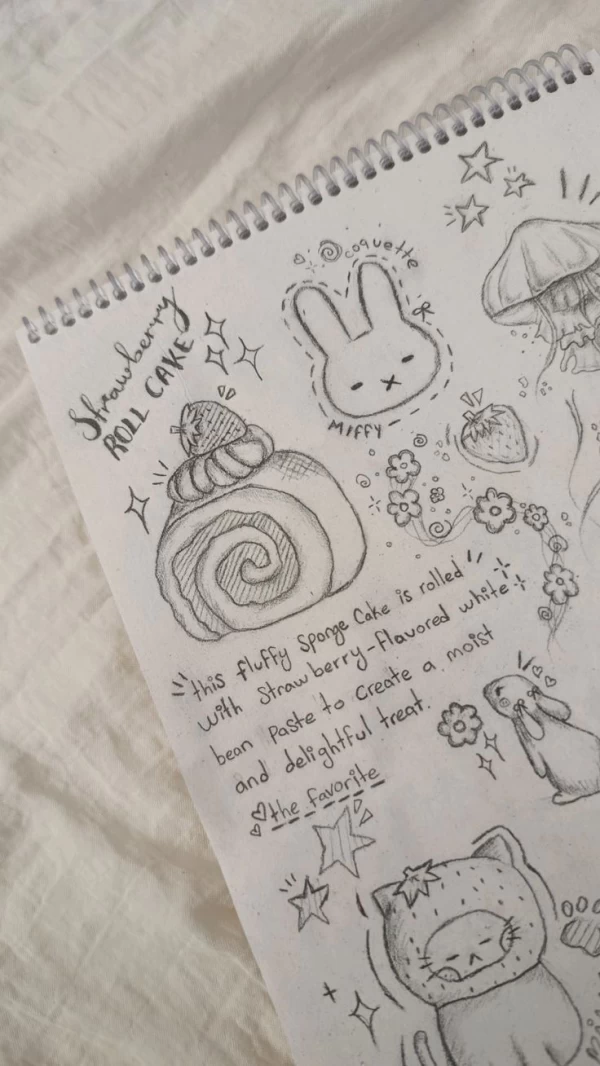 Strawberry
ROLL CAKE
coquette
MIFFY
this fluffy Sponge Cake is rolled
with Strawberry-flavored white
bean paste to create a moist
and delightful treat.
the favorite